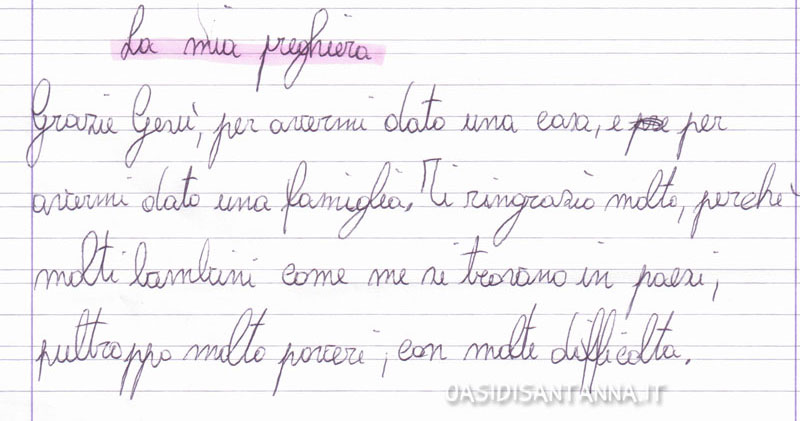 La mia preghiera
Grazie Gesù, per avermi dato una casa, e per
avermi dato una famiglia. Ti ringrazio molto, perchè
molti bambini come me si trovano in paesi,
pultroppo molto poveri, con molte difficolta.
OASIDISANTANNA.IT